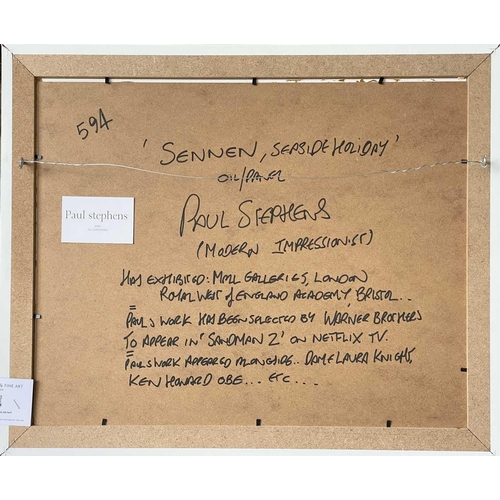 594
'SENNEN, SEASIDE HOLIDAY'
OIL/PANEL
PAUL STEPHENS
(MODERN IMPRESSIONIST)
Paul stephens
HAS EXHIBITED: MALL GALLERIES, LONDON
ROYAL WEST of ENGLAND ACADEMY, BRISTOL..
=
PAUL'S WORK HAS BEEN SELECTED BY WARNER BROTHERS
TO APPEAR IN 'SANDMAN 2' ON NETFLIX TV.
=
PAULS WORK APPEARED ALONGSIDE.. DAME LAURA KNIGHT,
KEN HOWARD OBE... ETC...
FINE ART